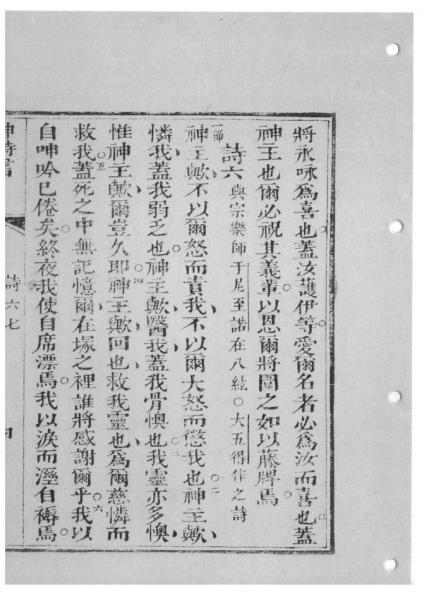 將永咏為喜也蓋汝護伊等愛爾名者必為汝而喜也蓋
神主也爾必祝其義輩以恩爾將圍之如以藤牌焉
詩六 與宗樂師于尼至諾在八絃○大五得作之詩
一節神主歟不以爾怒而責我不以爾大怒而懲我也二神主歟
憐我蓋我弱乏也神主歟醫我蓋我骨懊也三我靈亦多懊
惟神主歟爾豈久即四神主歟回也救我靈也為爾慈憐而
救我五蓋死之中無記憶爾在塚之裡誰將感謝爾乎六我以
自呻吟已倦矣終夜我使自席漂焉我以淚而溼自褥焉
神詩書 詩六七